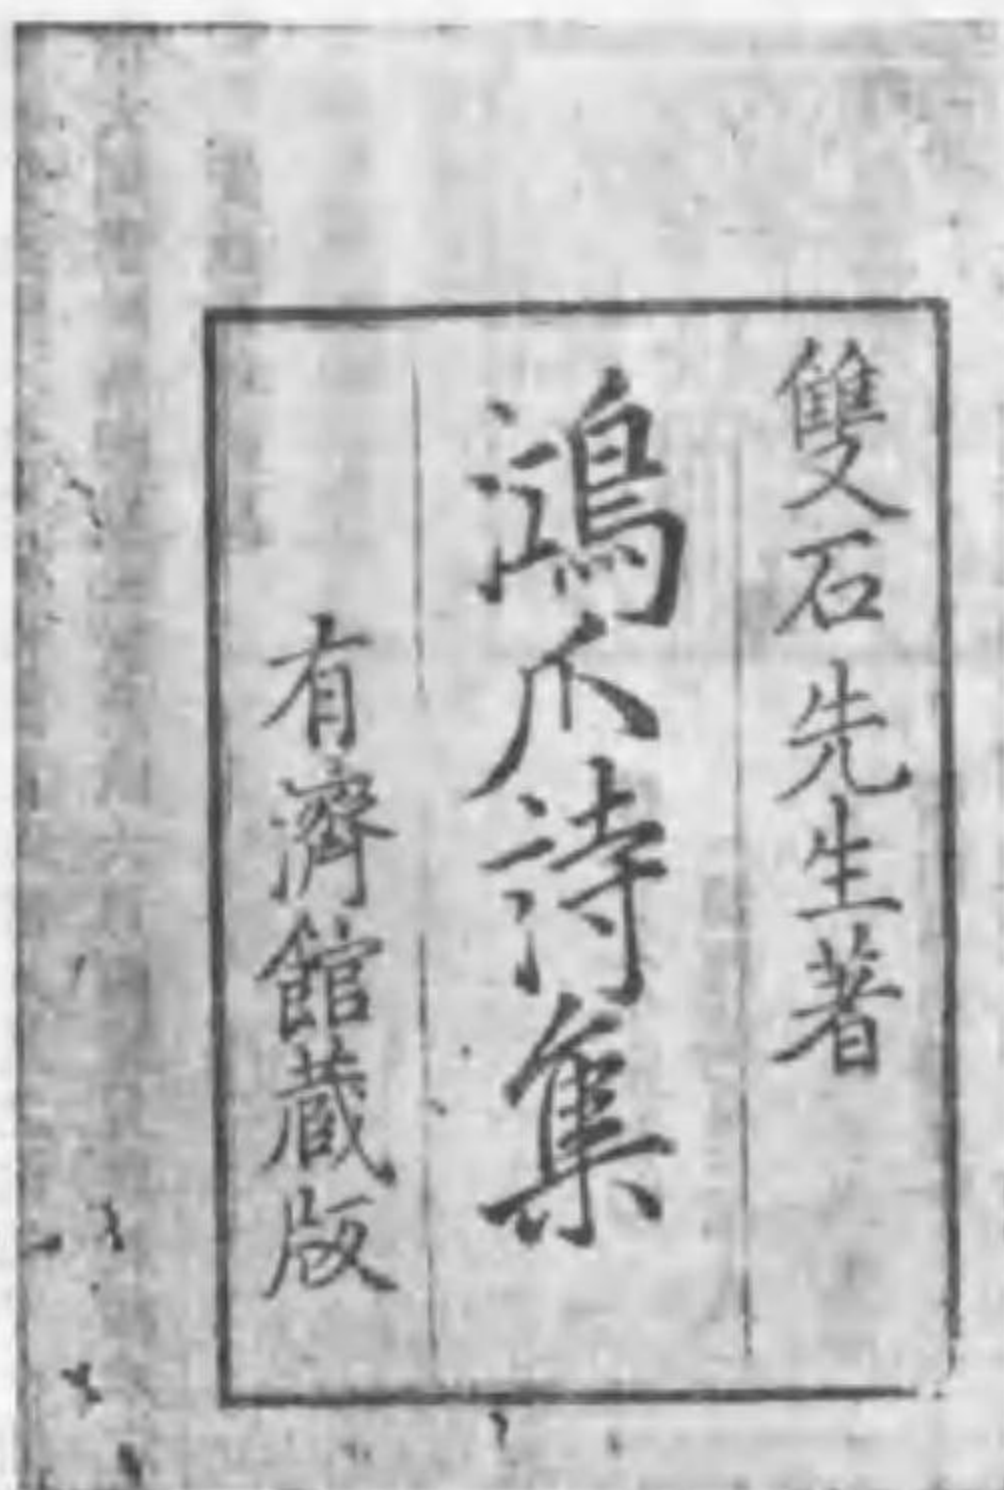 雙石先生著
鴻爪詩集
有濟館蔵版